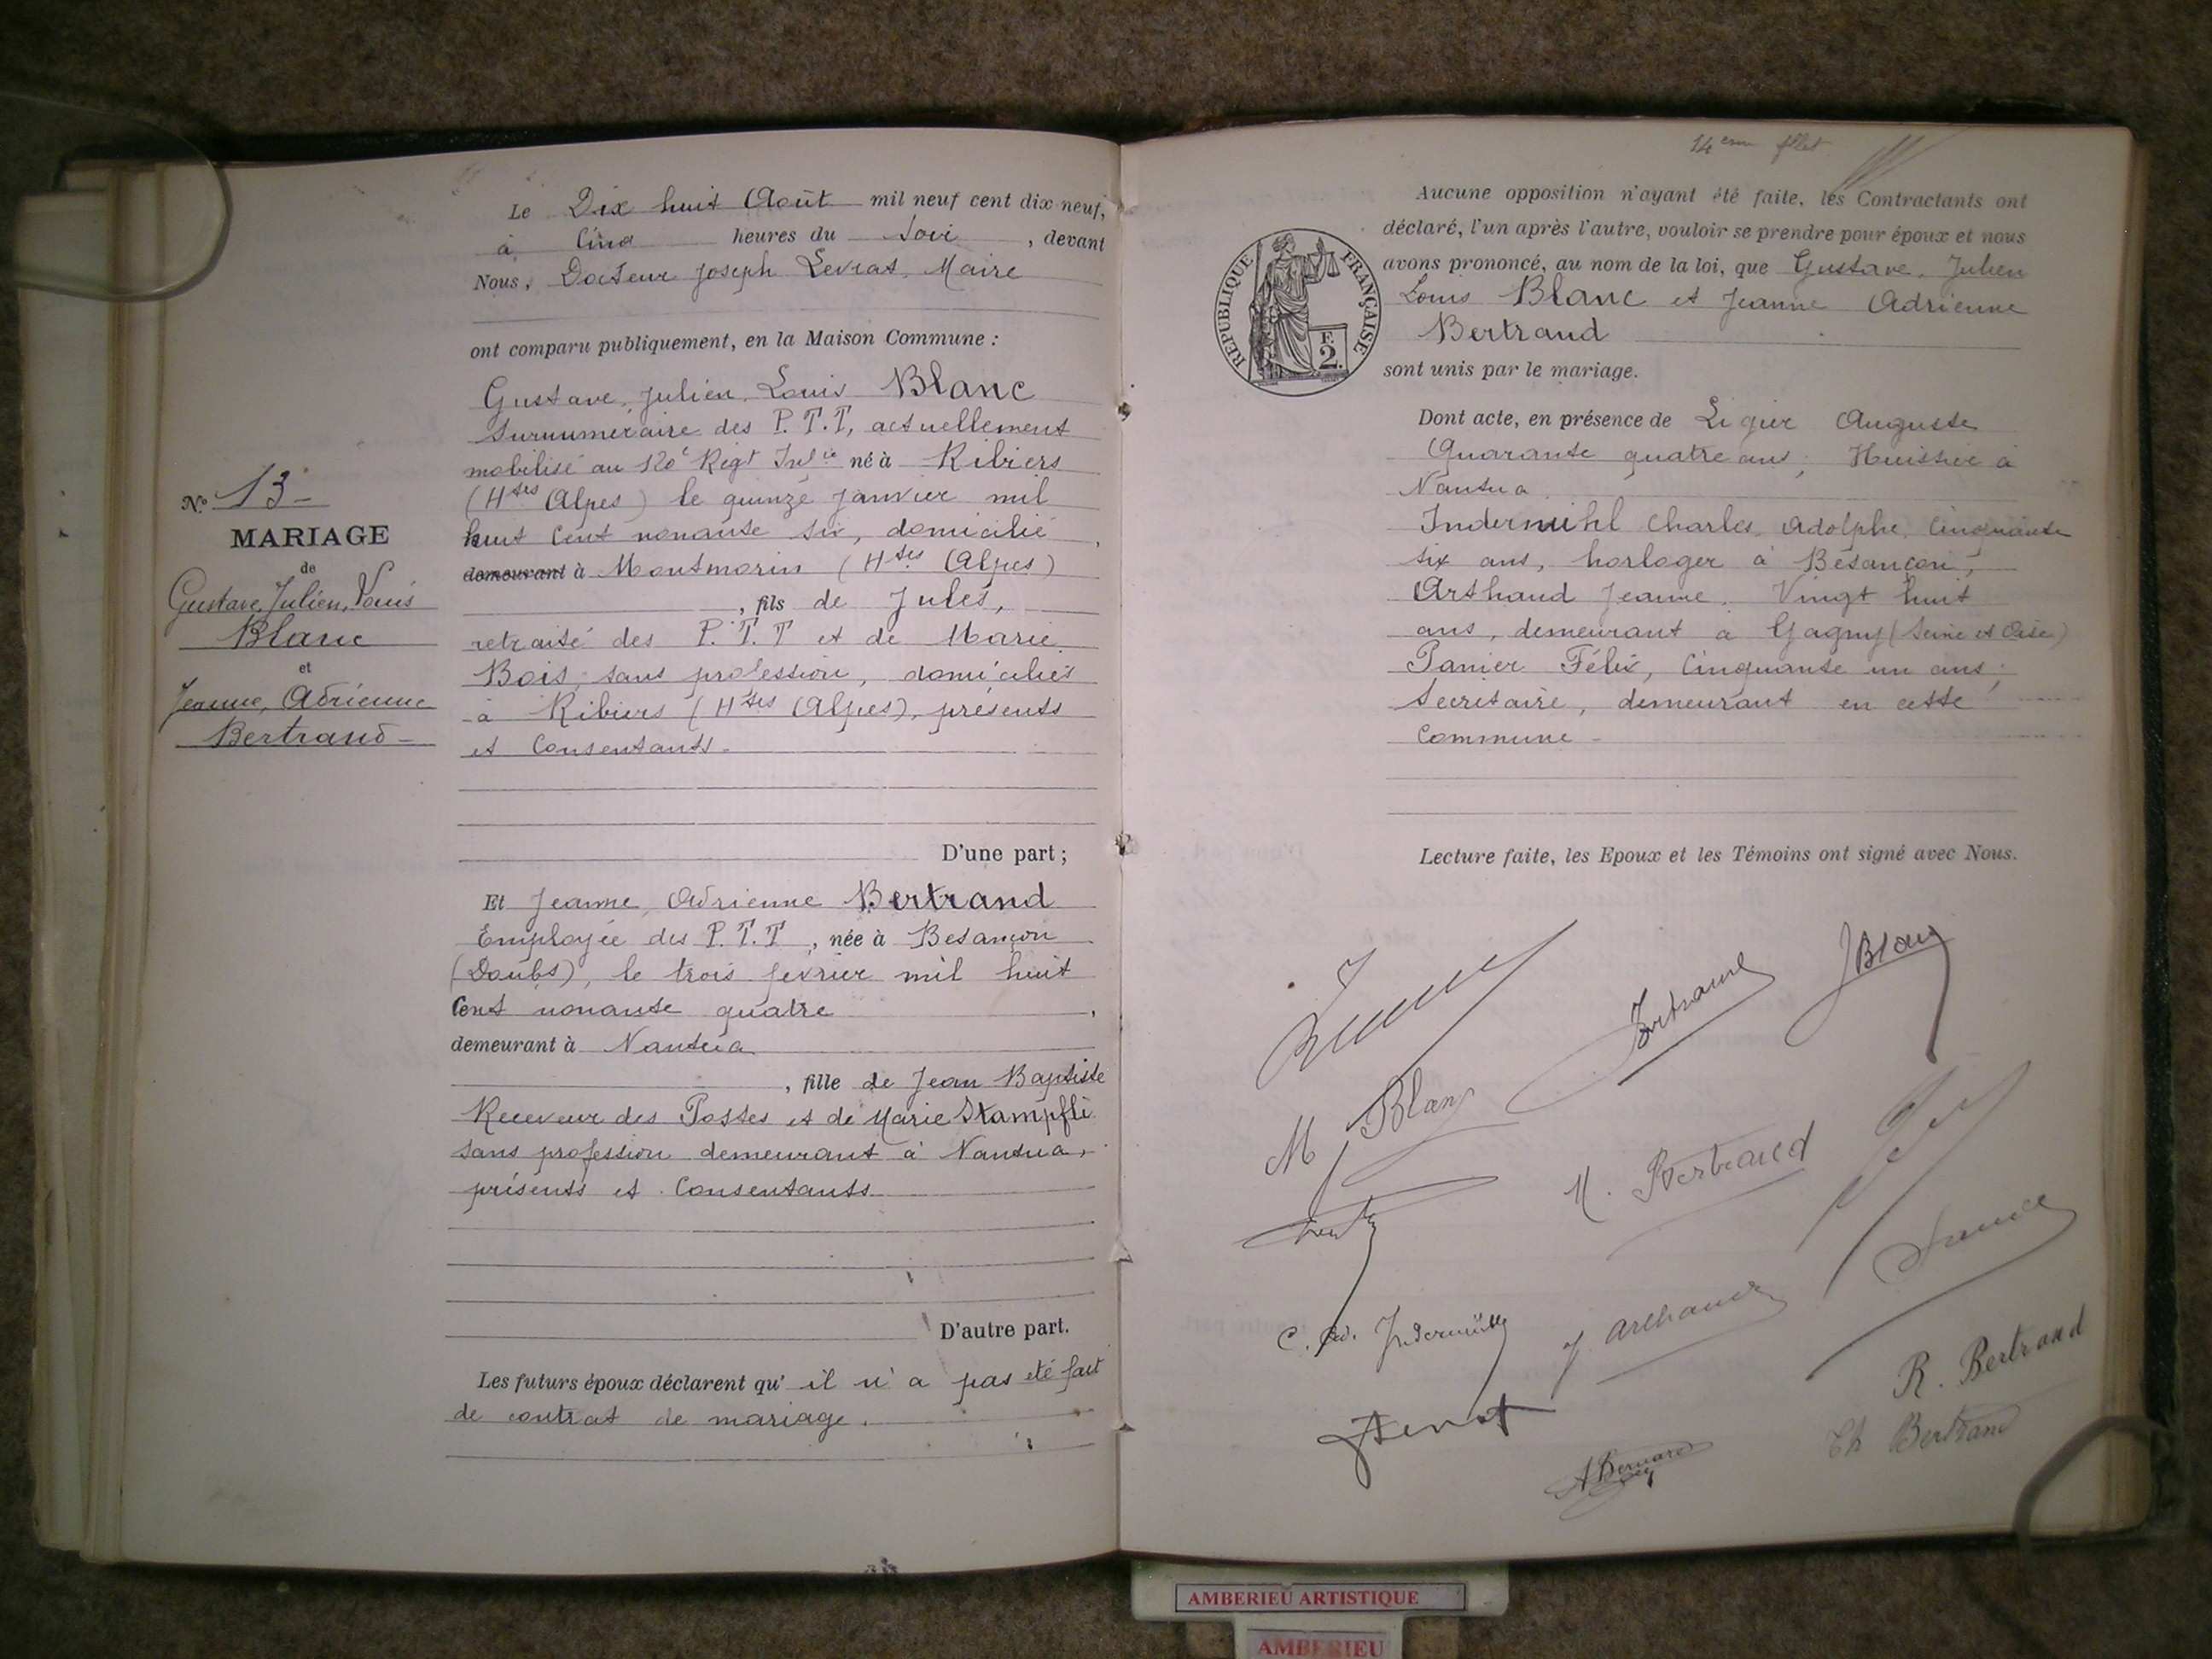 Le Dix huit Août mil neuf cent dix-neuf,
à Cinq heures du Soir, devant
Nous, Docteur Joseph Levrat, Maire
ont comparu publiquement, en la Maison Commune :
Gustave, Julien, Louis Blanc
Surnuméraire des P.T.T, actuellement
mobilisé au 120e Régt Infie né à Ribiers
(Htes Alpes) le quinze janvier mil
huit Cent nonante six, domicilié,
demeurant à Montmorin (Htes Alpes)
, fils de Jules,
retraité des P.T.T et de Marie
Bois, sans profession, domiciliés
à Ribiers (Htes Alpes), présents
et Consentants-
D'une part ;
Et Jeanne, Adrienne Bertrand
Employée des P.T.T, née à Besançon
(Doubs), le trois février mil huit
Cent nonante quatre,
demeurant à Nantua
, fille de Jean Baptiste
Receveur des Postes et de Marie Stampfli
sans profession demeurant à Nantua,
présents et Consentants
D'autre part.
Les futurs époux déclarent qu'il n'a pas été fait
de contrat de mariage.
No 13-
MARIAGE
de
Gustave, Julien, Louis
Blanc
et
Jeanne, Adrienne
Bertrand-
14eme
Aucune opposition n'ayant été faite, les Contractants ont
déclaré, l'un après l'autre, vouloir se prendre pour époux et nous
avons prononcé, au nom de la loi, que Gustave, Julien
Louis Blanc et Jeanne Adrienne
Bertrand
sont unis par le mariage.
RÉPUBLIQUE FRANÇAISE
F.
2.
Dont acte, en présence de Ligier Auguste
Quarante quatre ans, Huissier à
Nantua
Indermühl Charles, Adolphe, Cinquante
six ans, horloger à Besançon,
Arthaud Jeanne, Vingt huit
ans, demeurant à Gagny (Seine et Oise)
Panier Félix, Cinquante un ans,
Secrétaire, demeurant en cette
Commune-
Lecture faite, les Epoux et les Témoins ont signé avec Nous.
Bertrand
JBlanc
M Blanc
M. Bertrand
C. Ad. Indermühl
J. Arthaud
R. Bertrand
ABernard
Th Bertrand
AMBERIEU ARTISTIQUE
AMBERIEU